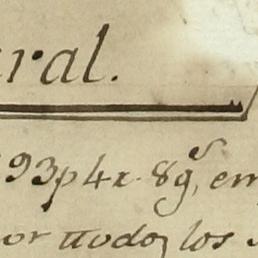 ral.
93p4r. 8g.s, em
or ttodoz los